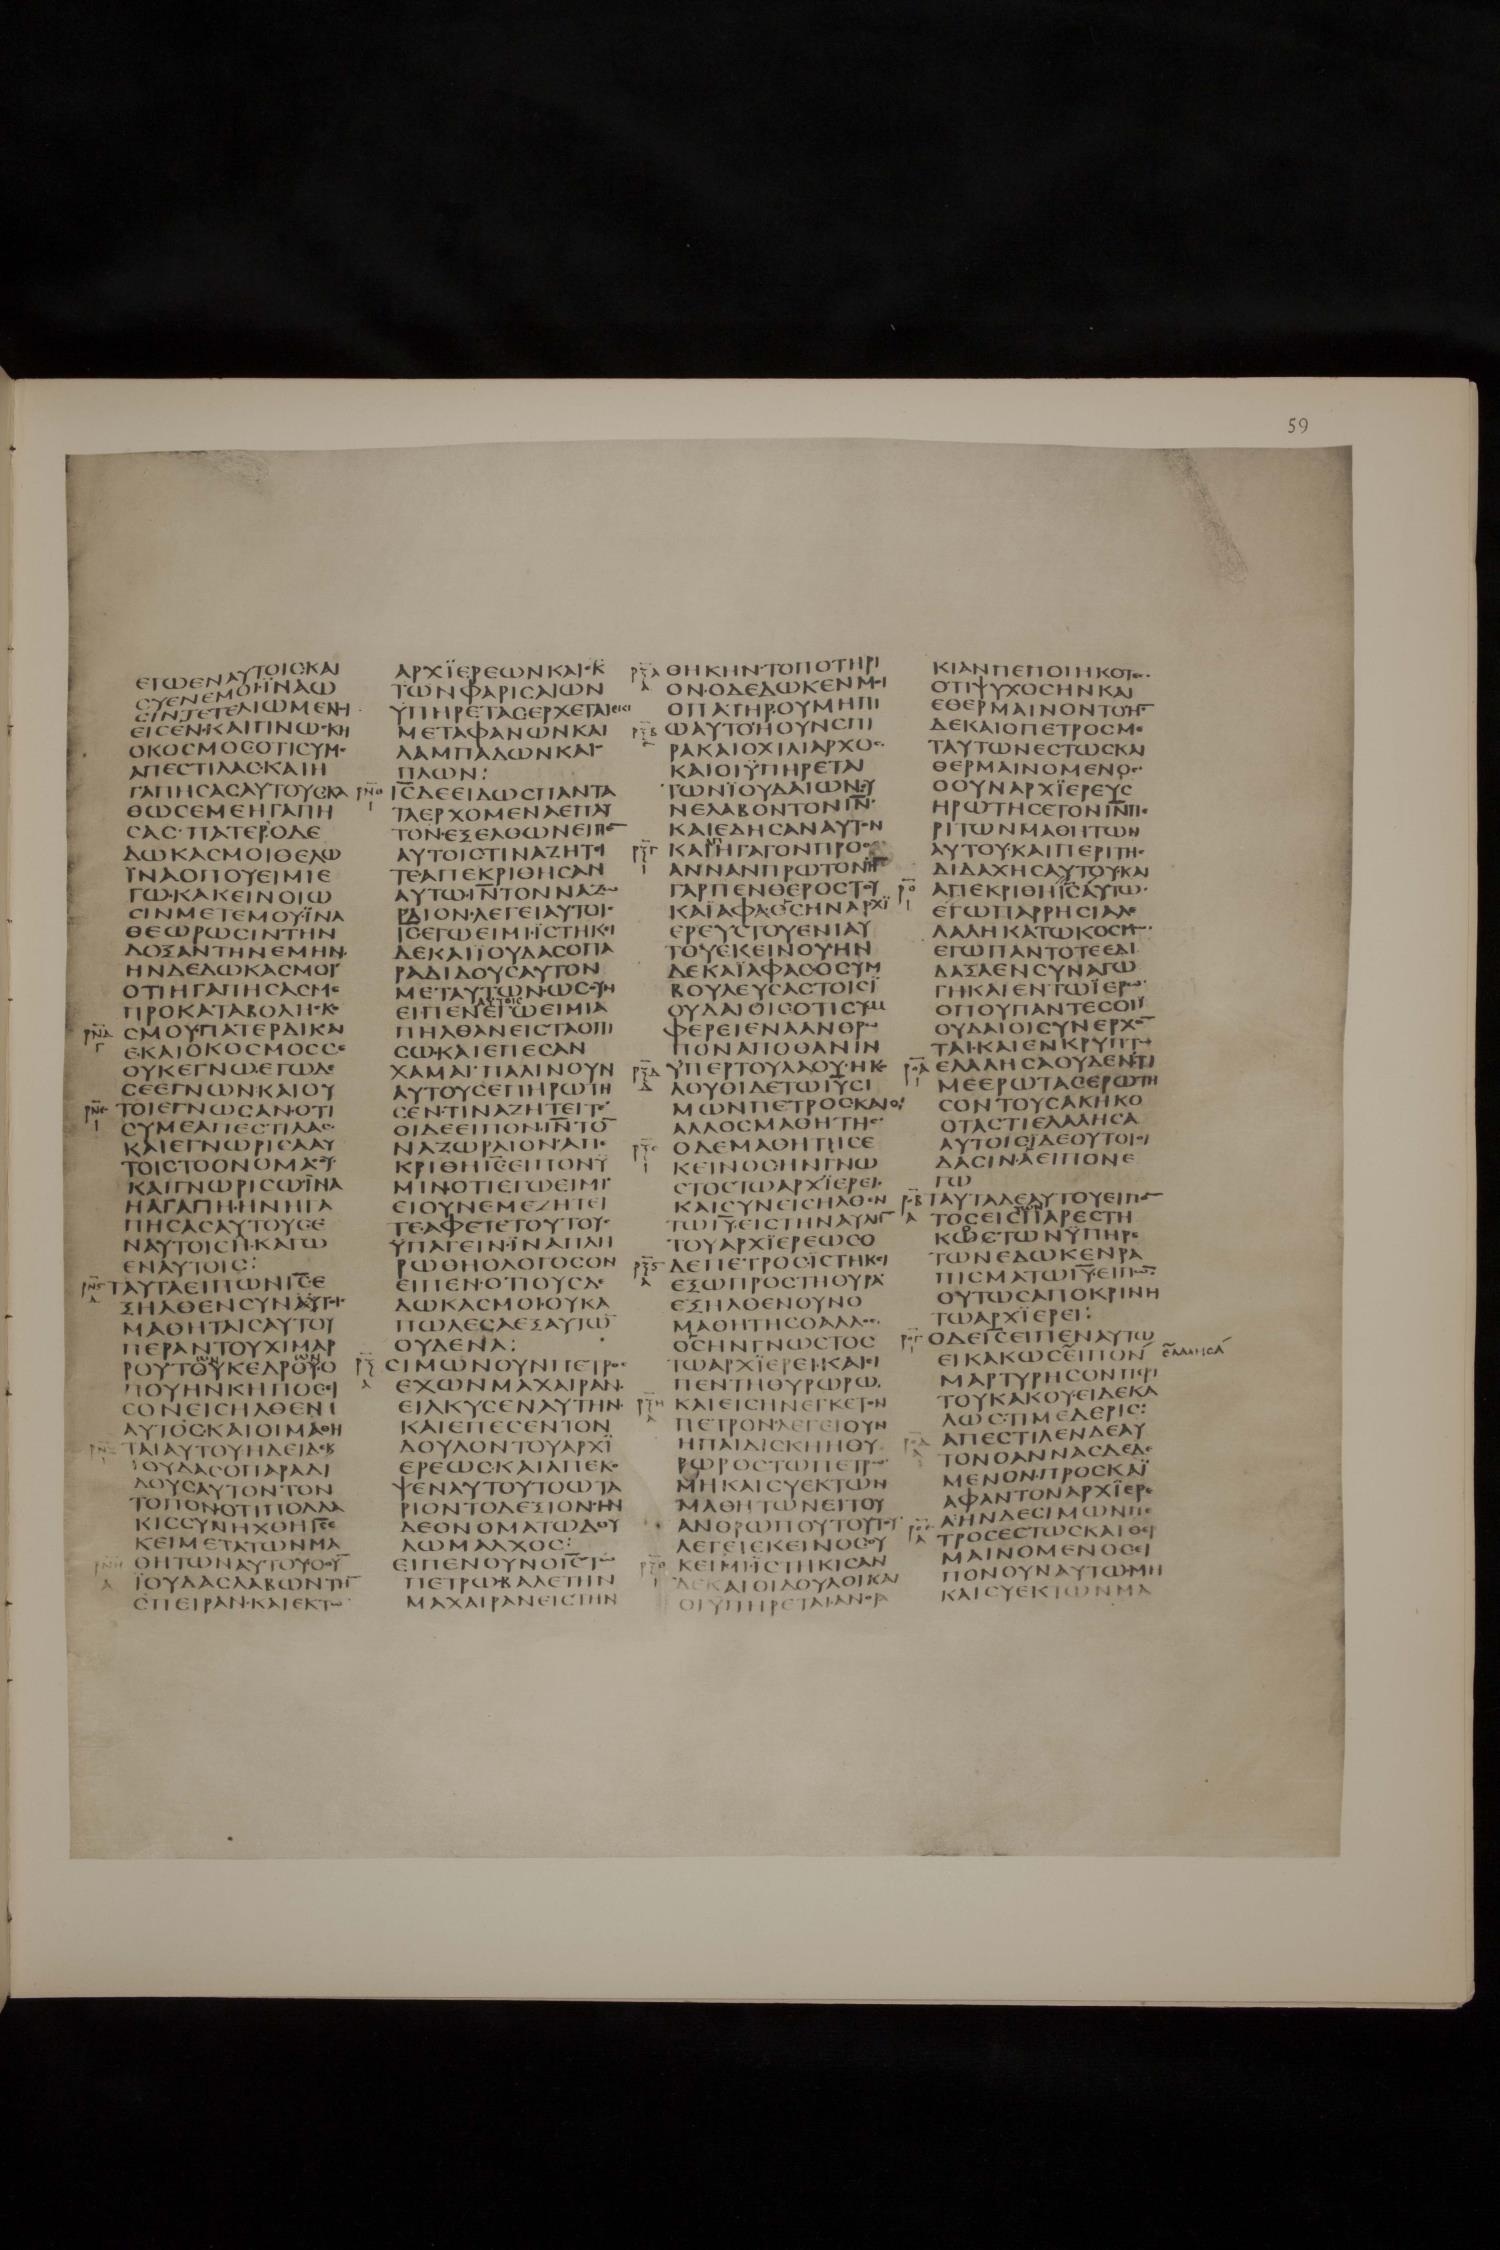 59
ΕΓΩΕΝΑΥΤΟΙϹΚΑΙ
ϹΥΕΝΕΜΟΙ·ΪΝΑΩ
ϹΙΝΤΕΤΕΛΙΩΜΕΝΟΙ
ΕΙϹΕΝ·ΚΑΙΓΙΝΩϹΚΗ
ΟΚΟϹΜΟϹΟΤΙϹΥΜΕ
ΑΠΕϹΤΙΛΑϹ·ΚΑΙΗ
ΓΑΠΗϹΑϹΑΥΤΟΥϹΚΑ
ΘΩϹΕΜΕΗΓΑΠΗ
ϹΑϹ·ΠΑΤΕΡΟΔΕ
ΔΩΚΑϹΜΟΙΘΕΛΩ
ΪΝΑΟΠΟΥΕΙΜΙΕ
ΓΩ·ΚΑΚΕΙΝΟΙΩ
ϹΙΝΜΕΤΕΜΟΥ·ΪΝΑ
ΘΕΩΡΩϹΙΝΤΗΝ
ΔΟΞΑΝΤΗΝΕΜΗΝ·
ΗΝΔΕΔΩΚΑϹΜΟΙ
ΟΤΙΗΓΑΠΗϹΑϹΜΕ
ΠΡΟΚΑΤΑΒΟΛΗϹΚΟ
ΡΝΔ Γ ϹΜΟΥ·ΠΑΤΕΡΔΙΚΑΙ
Ε·ΚΑΙΟΚΟϹΜΟϹϹΕ
ΟΥΚΕΓΝΩ·ΕΓΩΔΕ
ϹΕΕΓΝΩΝ·ΚΑΙΟΥ
ΡΝΕ Ι ΤΟΙΕΓΝΩϹΑΝ·ΟΤΙ
ϹΥΜΕΑΠΕϹΤΙΛΑϹ
ΚΑΙΕΓΝΩΡΙϹΑΑΥ
ΤΟΙϹΤΟΟΝΟΜΑϹΟΥ
ΚΑΙΓΝΩΡΙϹΩ·ΪΝΑ
ΗΑΓΑΠΗ·ΗΝΗΓΑ
ΠΗϹΑϹΑΥΤΟΥϹΕ
ΝΑΥΤΟΙϹΗ·ΚΑΓΩ
ΕΝΑΥΤΟΙϹ:
ΡΝϚ Α ΤΑΥΤΑΕΙΠΩΝΙϹΕ
ΞΗΛΘΕΝϹΥΝΑΥΤΟΙ
ΜΑΘΗΤΑΙϹΑΥΤΟΥ
ΠΕΡΑΝΤΟΥΧΙΜΑΡ
ΡΟΥΤΟΥΚΕΔΡΟΥ·Ο
ΠΟΥΗΝΚΗΠΟϹ·ΕΙ
ϹΟΝΕΙϹΗΛΘΕΝΙ
ΑΥΤΟϹ·ΚΑΙΟΙΜΑΘΗ
ΤΑΙΑΥΤΟΥ·ΗΔΕΙΔΕΚ
ΙΟΥΔΑϹΟΠΑΡΑΔΙ
ΔΟΥϹΑΥΤΟΝ·ΤΟΝ
ΤΟΠΟΝ·ΟΤΙΠΟΛΛΑ
ΚΙϹϹΥΝΗΧΘΗΙϹΕ
ΚΕΙΜΕΤΑΤΩΝΜΑ
ΡΝΗ Α ΘΗΤΩΝΑΥΤΟΥ·ΟΟΥ
ΪΟΥΔΑϹΛΑΒΩΝΤΗ
ϹΠΕΙΡΑΝ·ΚΑΙΕΚΤΩ
ΑΡΧΪΕΡΕΩΝΚΑΙΕΚ
ΤΩΝΦΑΡΙϹΑΙΩΝ
ΫΠΗΡΕΤΑϹΕΡΧΕΤΑΙΕΚΕΙ
ΜΕΤΑΦΑΝΩΝΚΑΙ
ΛΑΜΠΑΔΩΝΚΑΙ
ΠΛΩΝ:
ΡΝΘ Ι ΙϹΔΕΕΙΔΩϹΠΑΝΤΑ
ΤΑΕΡΧΟΜΕΝΑΕΠΑΥ
ΤΟΝ·ΕΞΕΛΘΩΝΕΙΠΕ
ΑΥΤΟΙϹΤΙΝΑΖΗΤΕΙ
ΤΕ·ΑΠΕΚΡΙΘΗϹΑΝ
ΑΥΤΩ·ΙΝΤΟΝΝΑΖΩ
ΡΑΙΟΝ·ΛΕΓΕΙΑΥΤΟΙϹ
ΙϹΕΓΩΕΙΜΙ·ΪϹΤΗΚΕΙ
ΔΕΚΑΙΪΟΥΔΑϹΟΠΑ
ΡΑΔΙΔΟΥϹΑΥΤΟΝ
ΜΕΤΑΥΤΩΝ·ΩϹΟΥΝ
ΑΥΤΟΙϹ
ΕΙΠΕΝΕΓΩΕΙΜΙΑ
ΠΗΛΘΑΝΕΙϹΤΑΟΠΙ
ϹΩ·ΚΑΙΕΠΕϹΑΝ
ΧΑΜΑΙ·ΠΑΛΙΝΟΥΝ
ΑΥΤΟΥϹΕΠΗΡΩΤΗ
ϹΕΝ·ΤΙΝΑΖΗΤΕΙΤΕ
ΟΙΔΕΕΙΠΟΝ·ΙΝΤΟ
ΝΑΖΩΡΑΙΟΝ·ΑΠΕ
ΚΡΙΘΗΙϹΕΙΠΟΝΫ
ΜΙΝ·ΟΤΙΕΓΩΕΙΜΙ
ΕΙΟΥΝΕΜΕΖΗΤΕΙ
ΤΕΑΦΕΤΕΤΟΥΤΟΥϹ
ΫΠΑΓΕΙΝ·ΪΝΑΠΛΗ
ΡΩΘΗΟΛΟΓΟϹΟΝ
ΕΙΠΕΝ·ΟΤΙΟΥϹΔΕ
ΔΩΚΑϹΜΟΙ·ΟΥΚΑ
ΠΩΛΕϹΑΕΞΑΥΤΩ
ΟΥΔΕΝΑ:
ΡΞ Α ϹΙΜΩΝΟΥΝΠΕΤΡΟϹ
ΕΧΩΝΜΑΧΑΙΡΑΝ·
ΕΙΛΚΥϹΕΝΑΥΤΗΝ·
ΚΑΙΕΠΕϹΕΝΤΟΝ
ΔΟΥΛΟΝΤΟΥΑΡΧΪ
ΕΡΕΩϹ·ΚΑΙΑΠΕΚΟ
ΨΕΝΑΥΤΟΥΤΟΩΤΑ
ΡΙΟΝΤΟΔΕΞΙΟΝ·ΗΝ
ΔΕΟΝΟΜΑΤΩΔΟΥ
ΛΩΜΑΛΧΟϹ:
ΕΙΠΕΝΟΥΝΟΙϹΤΩ
ΠΕΤΡΩ·ΒΑΛΕΤΗΝ
ΜΑΧΑΙΡΑΝΕΙϹΤΗΝ
ΡΞΑ Α ΘΗΚΗΝ·ΤΟΠΟΤΗΡΙ
ΟΝ·ΟΔΕΔΩΚΕΝΜΟΙ
ΟΠΑΤΗΡ·ΟΥΜΗΠΙ
ΡΞΒ ΩΑΥΤΟ·ΗΟΥΝϹΠΙ
ΡΑΚΑΙΟΧΙΛΙΑΡΧΟϹ
ΚΑΙΟΙΫΠΗΡΕΤΑΙ
ΤΩΝΪΟΥΔΑΙΩΝϹΥ
ΝΕΛΑΒΟΝΤΟΝΙΝ·
ΚΑΙΕΔΗϹΑΝΑΥΤΟΝ
ΡΞΓ Ι ΚΑΙΗΓΑΓΟΝΠΡΟϹ
ΑΝΝΑΝΠΡΩΤΟΝΗ
ΓΑΡΠΕΝΘΕΡΟϹΤΟΥ
ΚΑΪΑΦΑ·ΟϹΗΝΑΡΧΪ
ΕΡΕΥϹΤΟΥΕΝΙΑΥ
ΤΟΥΕΚΕΙΝΟΥ·ΗΝ
ΔΕΚΑΪΑΦΑϹΟϹΥΜ
ΒΟΥΛΕΥϹΑϹΤΟΙϹΪ
ΟΥΔΑΙΟΙϹΟΤΙϹΥΜ
ΦΕΡΕΙΕΝΑΑΝΘΡΩ
ΠΟΝΑΠΟΘΑΝΙΝ
ΡΞΔ Δ ΫΠΕΡΤΟΥΛΑΟΥ·ΗΚΟ
ΛΟΥΘΙΔΕΤΩΙΥϹΙ
ΜΩΝΠΕΤΡΟϹΚΑΙΟ
ΑΛΛΟϹΜΑΘΗΤΗϹ
ΡΞΕ Ι ΟΔΕΜΑΘΗΤΗϹΕ
ΚΕΙΝΟϹΗΝΓΝΩ
ϹΤΟϹΤΩΑΡΧΪΕΡΕΙ·
ΚΑΙϹΥΝΕΙϹΗΛΘΕΝ
ΤΩΙΥ·ΕΙϹΤΗΝΑΥΛΗ
ΤΟΥΑΡΧΪΕΡΕΩϹΟ
ΡΞϚ Α ΔΕΠΕΤΡΟϹ·ΪϹΤΗΚΕΙ
ΕΞΩΠΡΟϹΤΗΟΥΡΑ
ΕΞΗΛΘΕΝΟΥΝΟ
ΜΑΘΗΤΗϹΟΑΛΛΟϹ
ΟϹΗΝΓΝΩϹΤΟϹ
ΤΩΑΡΧΪΕΡΕΙ·ΚΑΙΕΙ
ΠΕΝΤΗΘΥΡΩΡΩ·
ΡΞΗ Α ΚΑΙΕΙϹΗΝΕΓΚΕΤΟΝ
ΠΕΤΡΟΝ·ΛΕΓΕΙΟΥΝ
ΗΠΑΙΔΙϹΚΗΗΘΥ
ΡΩΡΟϹΤΩΠΕΤΡΩ
ΜΗΚΑΙϹΥΕΚΤΩΝ
ΜΑΘΗΤΩΝΕΙΤΟΥ
ΑΝΘΡΩΠΟΥΤΟΥΤΟΥ·
ΛΕΓΕΙΕΚΕΙΝΟϹΟΥ
ΡΞΘ Ι ΚΕΙΜΙ·ΪϹΤΗΚΙϹΑΝ
ΔΕΚΑΙΟΙΔΟΥΛΟΙΚΑΙ
ΟΙΫΠΗΡΕΤΑΙ·ΑΝΘΡΑ
ΚΙΑΝΠΕΠΟΙΗΚΟΤΕϹ
ΟΤΙΨΥΧΟϹΗΝΚΑΙ
ΕΘΕΡΜΑΙΝΟΝΤΟ·Η
ΔΕΚΑΙΟΠΕΤΡΟϹΜΕ
ΤΑΥΤΩΝΕϹΤΩϹΚΑΙ
ΘΕΡΜΑΙΝΟΜΕΝΟϹ·
ΟΟΥΝΑΡΧΪΕΡΕΥϹ
ΗΡΩΤΗϹΕΤΟΝΙΝΠΕ
ΡΙΤΩΝΜΑΘΗΤΩΝ
ΑΥΤΟΥ·ΚΑΙΠΕΡΙΤΗϹ
ΔΙΔΑΧΗϹΑΥΤΟΥ·ΚΑΙ
ΡΟ Ι ΑΠΕΚΡΙΘΗΙϹΑΥΤΩ·
ΕΓΩΠΑΡΡΗϹΙΑΛΕ
ΛΑΛΗΚΑΤΩΚΟϹΜΩ·
ΕΓΩΠΑΝΤΟΤΕΕΔΙ
ΔΑΞΑΕΝϹΥΝΑΓΩ
ΓΗΚΑΙΕΝΤΩΪΕΡΩ
ΟΠΟΥΠΑΝΤΕϹΟΙΪ
ΟΥΔΑΙΟΙϹΥΝΕΡΧΟ
ΤΑΙ·ΚΑΙΕΝΚΡΥΠΤΩ
ΡΟΑ Ι ΕΛΑΛΗϹΑΟΥΔΕΝ·ΤΙ
ΜΕΕΡΩΤΑϹΕΡΩΤΗ
ϹΟΝΤΟΥϹΑΚΗΚΟ
ΟΤΑϹΤΙΕΛΑΛΗϹΑ
ΑΥΤΟΙϹΪΔΕΟΥΤΟΙΟΙ
ΔΑϹΙΝ·ΑΕΙΠΟΝΕ
ΓΩ
ΡΟΒ Α ΤΑΥΤΑΔΕΑΥΤΟΥΕΙΠΟ
ΤΟϹΕΙϹΠΑΡΕϹΤΗ
ΚΩϹΤΩΝΫΠΗΡΕ
ΤΩΝΕΔΩΚΕΝΡΑ
ΠΙϹΜΑΤΩΙΥ·ΕΙΠΩ
ΟΥΤΩϹΑΠΟΚΡΙΝΗ
ΤΩΑΡΧΪΕΡΕΙ:
ΡΟΓ Ι ΟΔΕΙϹΕΙΠΕΝΑΥΤΩ
ΕΙΚΑΚΩϹΕΙΠΟΝ ΕΛΑΛΗϹΑ
ΜΑΡΤΥΡΗϹΟΝΠΕΡΙ
ΤΟΥΚΑΚΟΥ·ΕΙΔΕΚΑ
ΛΩϹ·ΤΙΜΕΔΕΡΙϹ:
ΑΠΕϹΤΙΛΕΝΔΕΑΥ
ΤΟΝΟΑΝΝΑϹΔΕΔΕ
ΜΕΝΟΝ·ΠΡΟϹΚΑΪ
ΑΦΑΝΤΟΝΑΡΧΪΕΡΕ
Α·ΗΝΔΕϹΙΜΩΝΠΕ
ΤΡΟϹΕϹΤΩϹΚΑΙΘΕΡ
ΜΑΙΝΟΜΕΝΟϹΕΙ
ΠΟΝΟΥΝΑΥΤΩΜΗ
ΚΑΙϹΥΕΚΤΩΝΜΑ